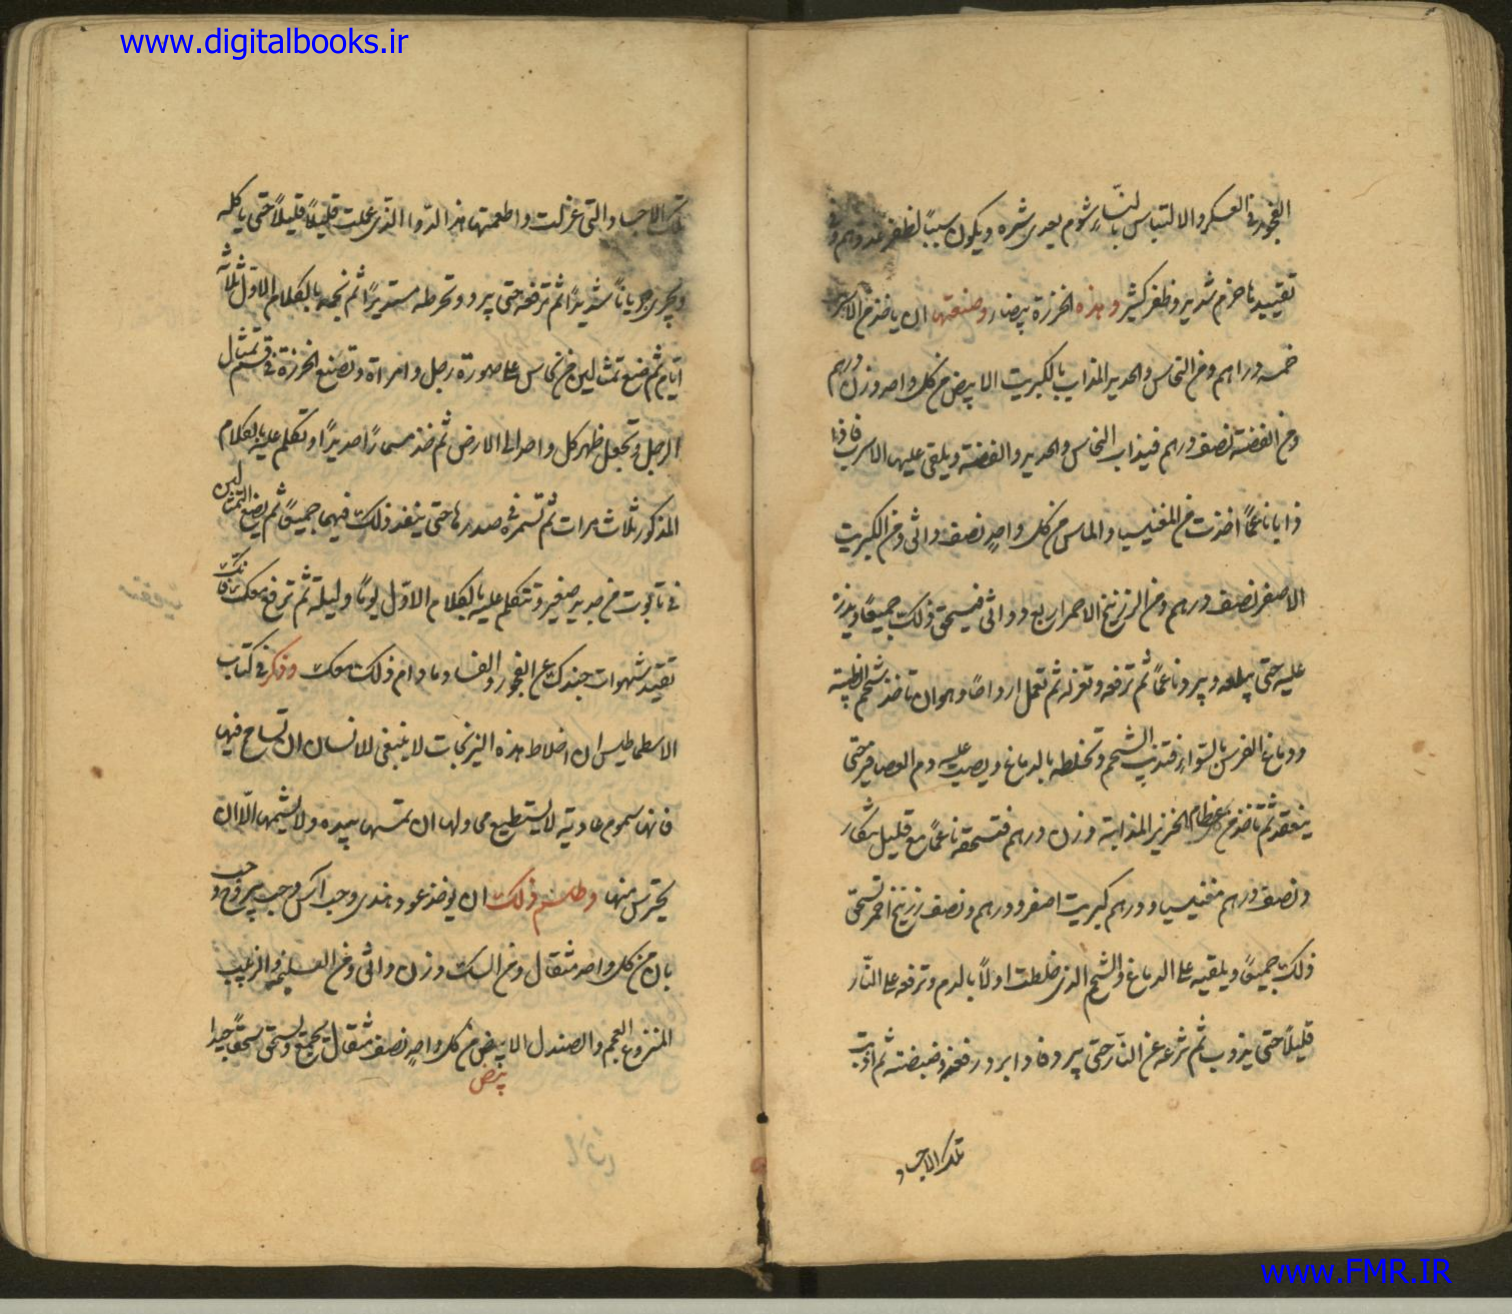 www.digitalbooks.ir
الفجور فی العسكر والالتباس بالنساء شوم يعدى شره ويكون سببًا لظفر عدوهم وفى
تقييدها حزم شديد وظفر كثير وهذه الخرزة بيضاء وصنعتها ان ياخذ من الاسرب
خمسه دراهم ومن النحاس والحديد المذاب بالكبريت الابيض من كل واحد وزن درهم
ومن الفضة نصف درهم فيذاب النحاس والحديد والفضة ويلقى عليها الاسرب فاذا
ذابا ناعمًا اخذت من المغنيسيا والماس من كل واحدٍ نصف دانق ومن الكبريت
الاصفر نصف درهم ومن الزرنيخ الاحمر اربع دوانق فيسحق ذلك جميعًا ويذر
عليه حتى يبلعه ويبرد ناعمًا ثم ترفعه وتعزله ثم تعمل ارواحًا وهو ان تاخذ شحم الظبية
ودماغ الفرس بالسواء فتذيب الشحم وتخلطه بالدماغ ويصيب عليه دم العصافير حتى
ينعقد ثم تاخذ من عظام الخنزير المذابة وزن درهم فتسحقه ناعمًا مع قليل شكار
ونصف درهم مغنيسيا ودرهم كبريت اصفر ودرهم ونصف زرنيخ احمر تسحق
ذلك جميعًا ويلقيه على الدماغ والشحم الذى خلطت اولًا بالدم وترفعه على النار
قليلًا حتى يذوب ثم تنزعه عن النار حتى يبرد فاذا برد رفعته وقبضته ثم اذبت
تلك الاجساد
تلك الاجساد والتى عزلت واطعمتها هذا الدوا الذى عملت قليلًا قليلًا حتى ياكله
ويجرى جريانًا شديدًا ثم ترفعه حتى يبرد وتخرطه مستديرًا ثم نجمه بالكلام الاول ثلاثة
ايام ثم ضع تمثالين من نحاس على صورة رجل وامراة وتضع الخرزة فى فم تمثال
الرجل وتجعل ظهر كل واحد الى الارض ثم خذ مسمارًا حديدًا وتكلم عليه بالكلام
المذكور ثلاث مرات ثم تسمره فى صدرها حتى ينفذ ذلك فيهما جميعًا ثم يضع التمثالين
فى تابوت من حديد صغير وتتكلم عليه بالكلام الاول يومًا وليلة ثم ترفع معك فانك
تقيد شهوات جندك عن الفجور والفساد مادام ذلك معك وذكر فى كتاب
الاسطماطيس ان اخلاط هذه النيرنجات لا ينبغى للانسان ان تسامح فيها
فانها سموم عادية لا يستطيع محاولها ان تمسها بيده ولا يشمها الّا ان
يحترس منها وطلسم ذلك ان يوخذ عود هندى وحب اكس وحب يبروح وحب
بان من كل واحد مثقال ومن السك وزن دانق ومن السليخه والزبيب
المنزوع العجم والصندل الابيض من كل واحدٍ نصف مثقال يجمع وتسحق سحقًا جيدا
www.FMR.IR